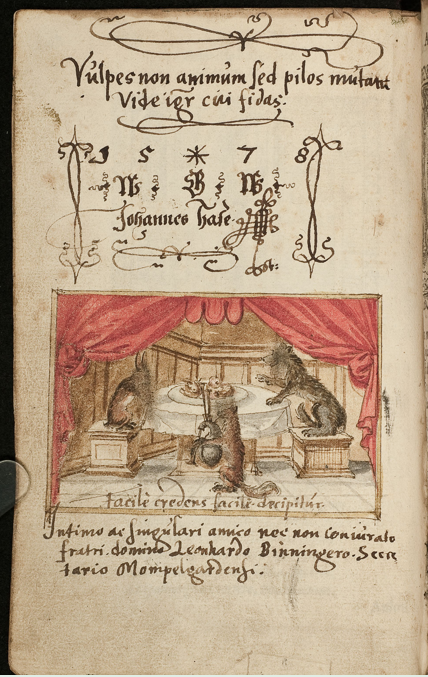 Vulpes non animum sed pilos mutant
Vide igr cui fidas.
15*78
W B W
Johannes Hase
sst:
facilè credens facilè decipitur.
Intimo ac singulari amico nec non coniurato
fratri domino Leonhardo Binningero Secre
tario Mompelgardensi: